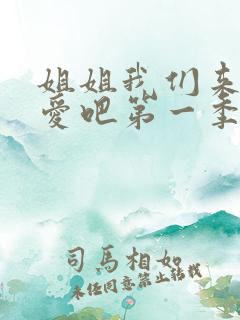 姐姐我们来
爱吧第一季
司马相如
未经同意禁止转载